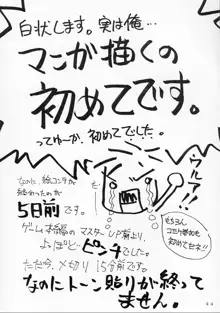 白状します。実は俺…
マンガ描くの
初めてです。
ってゆーか、初めてでした。
ウルア!!
なのに、絵コンテが
終わったのが
5日前です。
もちろん
コミケ参加も
初めてだす!!
ゲーム本編のマスターUP前より、
よっぽどピンチでした。
ただ今、〆切り15分前です。
なのにトーン貼りが終って
ません。
44